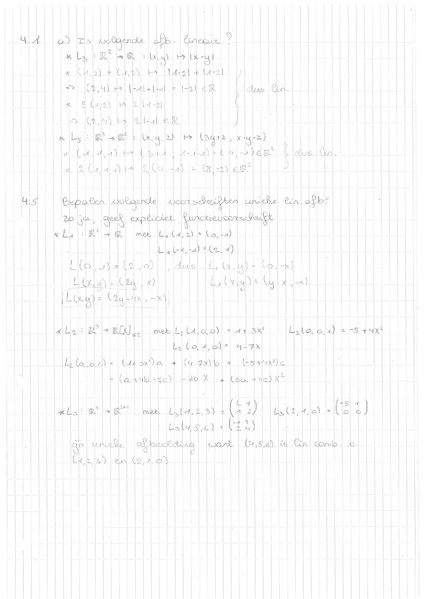 4.1 a) Is volgende afb. lineair?
* L₃ : ℝ² → ℝ : (x,y) ↦ |x-y|
* (1,2) + (1,2) ↦ |1-2| + |1-2|
⇒ (2,4) ↦ |-1|+|-1| = |-2| ∈ ℝ
* 2(1,2) ↦ 2|1-2|
⇒ (2,4) ↦ 2|-1| ∈ ℝ
dus lin.
* L₅ : ℝ³ → ℝ² : (x,y,z) ↦ (3y+z, x-y-z)
* (1,1,1) ↦ (3+1, 1-1-1) = (4,-1) ∈ ℝ²
* 2(1,1,1) ↦ 2(4,-1) = (8,-2) ∈ ℝ²
dus lin.
4.5 Bepalen volgende voorschriften unieke lin. afb?
Zo ja, geef expliciet functievoorschrift
* L₁ : ℝ² → ℝ met L₁(1,2) = (0,-1)
L₁(-1,-1) = (2,1)
L(0,1) = (2,0), dus L₁(x,y) = (0,-x)
L(x,y) = (2y, ) L₁(x,y) = (y x, -x)
L(x,y) = (2y-4x, -x)
* L₂ : ℝ³ → ℝ[X]≤2 met L₂(1,0,0) = 1+3X² L₂(0,0,1) = -5+4X²
L₂(0,1,0) = 4-7X
L₂(a,b,c) = (1+3x²)a + (4-7X)b + (-5+4X²)c
= (a+4b-5c) X + (3a+4c)X²
* L₃ : ℝ³ → met L₃(1,2,3) = L₃(2,1,0) = (-5 1
0 0)
L₃(4,5,6) =
gn unieke afbeelding want (4,5,6) is lin comb v
(1,2,3) en (2,1,0)